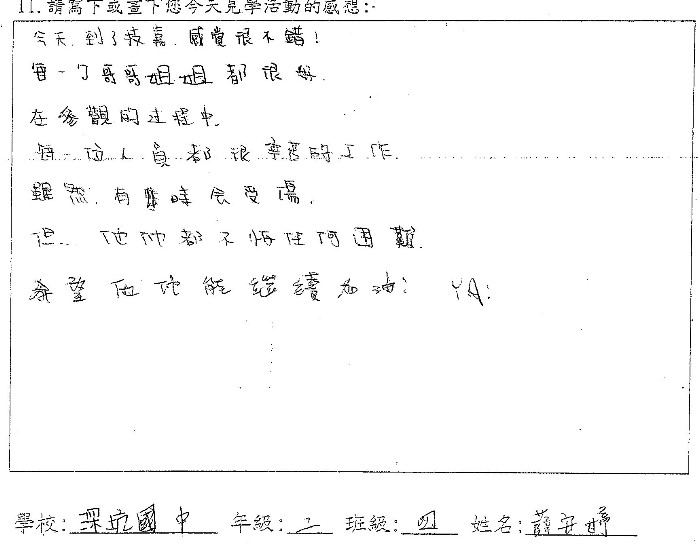 11. 請寫下或畫下您今天見學活動的感想:
今天,到了技嘉,感覺很不錯!
每一个哥哥姐姐都很好.
在參觀的过程中,
每一位人員都很辛苦的工作.
雖然,有時会受傷,
但.. 他们都不怕任何困難.
希望他们能繼續加油! YA!
學校: 深坑國中 年級: 二 班級: 四 姓名: 薛安婷